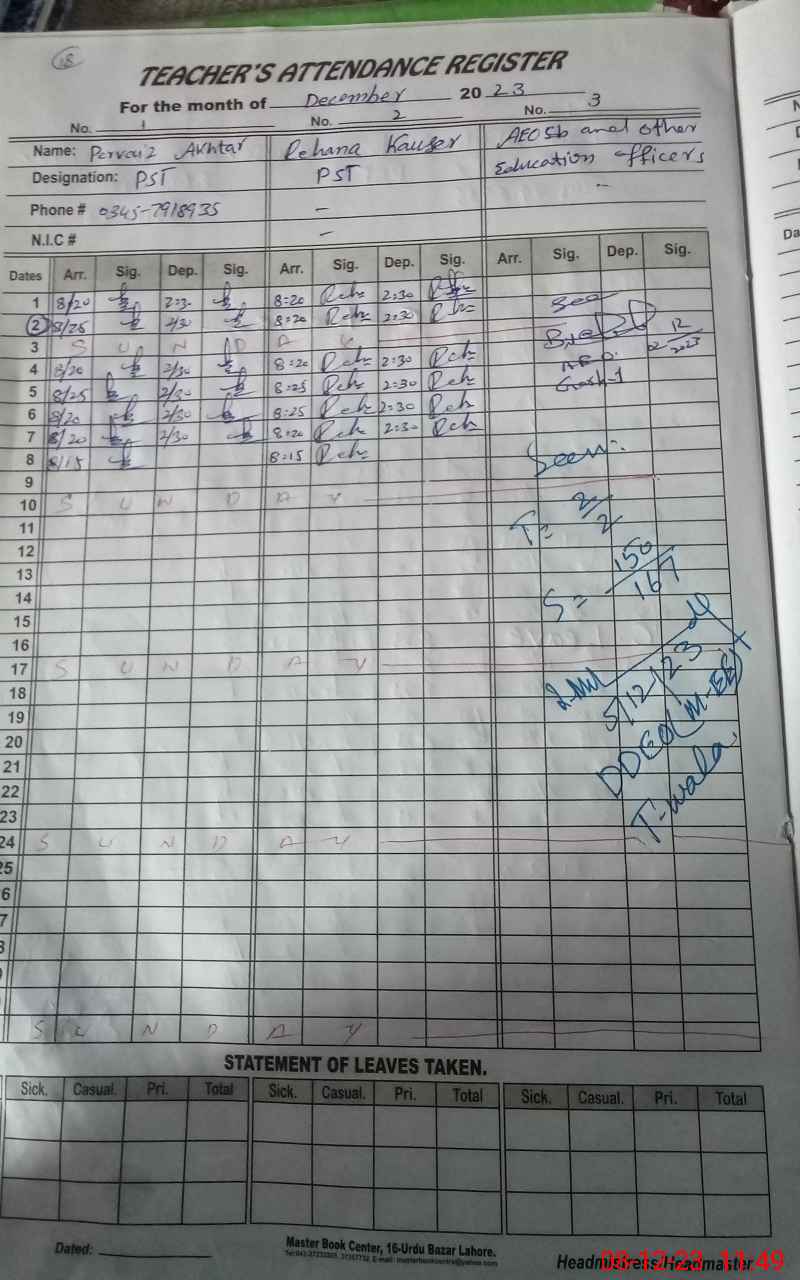 18
TEACHER'S ATTENDANCE REGISTER
For the month of December 2023
No. 1 No. 2 No. 3
Name: Pervaiz Akhtar Rehana Kauser AEOs and other
Designation: PST PST Education officers
Phone # 0345-7918935 –
N.I.C # –
Dates Arr. Sig. Dep. Sig. Arr. Sig. Dep. Sig. Arr. Sig. Dep. Sig.
1 8/20 2:30 8:20 Reh 2:30 Reh
2 8/25 2/30 8:20 Reh 2:30 Reh
3 S U N D A Y
4 8/20 2/30 8:20 Reh 2:30 Reh
5 8/25 2/30 8:25 Reh 2:30 Reh
6 8/20 2/30 8:25 Reh 2:30 Reh
7 8/20 2/30 8:20 Reh 2:30 Reh
8 8/15 8:15 Reh
9
10 S U N D A Y
11
12
13
14
15
16
17 S U N D A Y
18
19
20
21
22
23
24 S U N D A Y
25
6
7
8
S U N D A Y
See
12
02 2023
Seen:
T= 2/2
S= 150/167
5/12/23
DDEO (M-EE)
T-wala
STATEMENT OF LEAVES TAKEN.
Sick. Casual. Pri. Total Sick. Casual. Pri. Total Sick. Casual. Pri. Total
Dated:
Master Book Center, 16-Urdu Bazar Lahore.
Headmistress/Headmaster
08-12-23 11:49